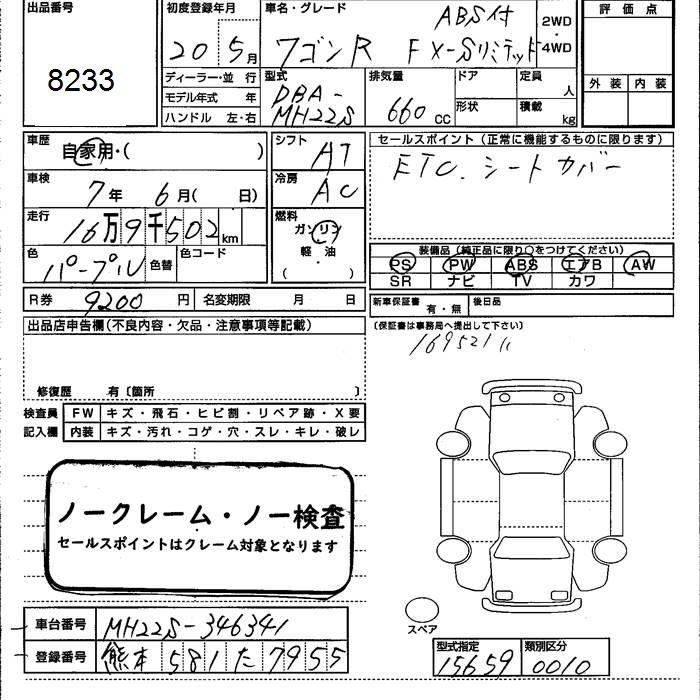 出品番号
8233
初度登録年月
20 5月
車名・グレード
ABS付
ワゴンR FX-Sリミテッド
2WD
・
4WD
評価点
外装 内装
ディーラー・並行
モデル年式 年
ハンドル 左・右
型式
DBA-
MH22S
排気量
660 CC
ドア
形状
定員
人
積載
kg
車歴
自家用・( )
車検
7年 6月( 日)
走行
16万9千502km
色
パープル
色替
色コード
R券 9200円
名変期限 月 日
シフト
AT
冷房
AC
燃料
ガソリン
軽・油
( )
セールスポイント(正常に機能するものに限ります)
ETC. シートカバー
装備品(純正品に限り○をつけてください)
PS PW ABS エアB AW
SR ナビ TV カワ
新車保証書 有・無
後日品
(保証書は事務局へ提出して下さい)
169521
出品店申告欄(不良内容・欠品・注意事項等記載)
修復歴 有〔箇所 〕
検査員
記入欄
FW キズ・飛石・ヒビ割・リペア跡・X要
内装 キズ・汚れ・コゲ・穴・スレ・キレ・破レ
ノークレーム・ノー検査
セールスポイントはクレーム対象となります
スペア
車台番号 MH22S-346341
登録番号 熊本 581 た 7955
型式指定
15659
類別区分
0010